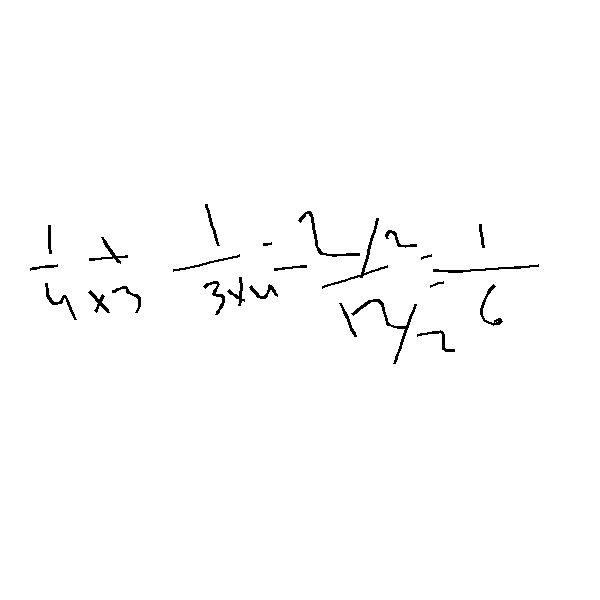 1/4×3 + 1/3×4 = 2/2/12/2 = 1/6